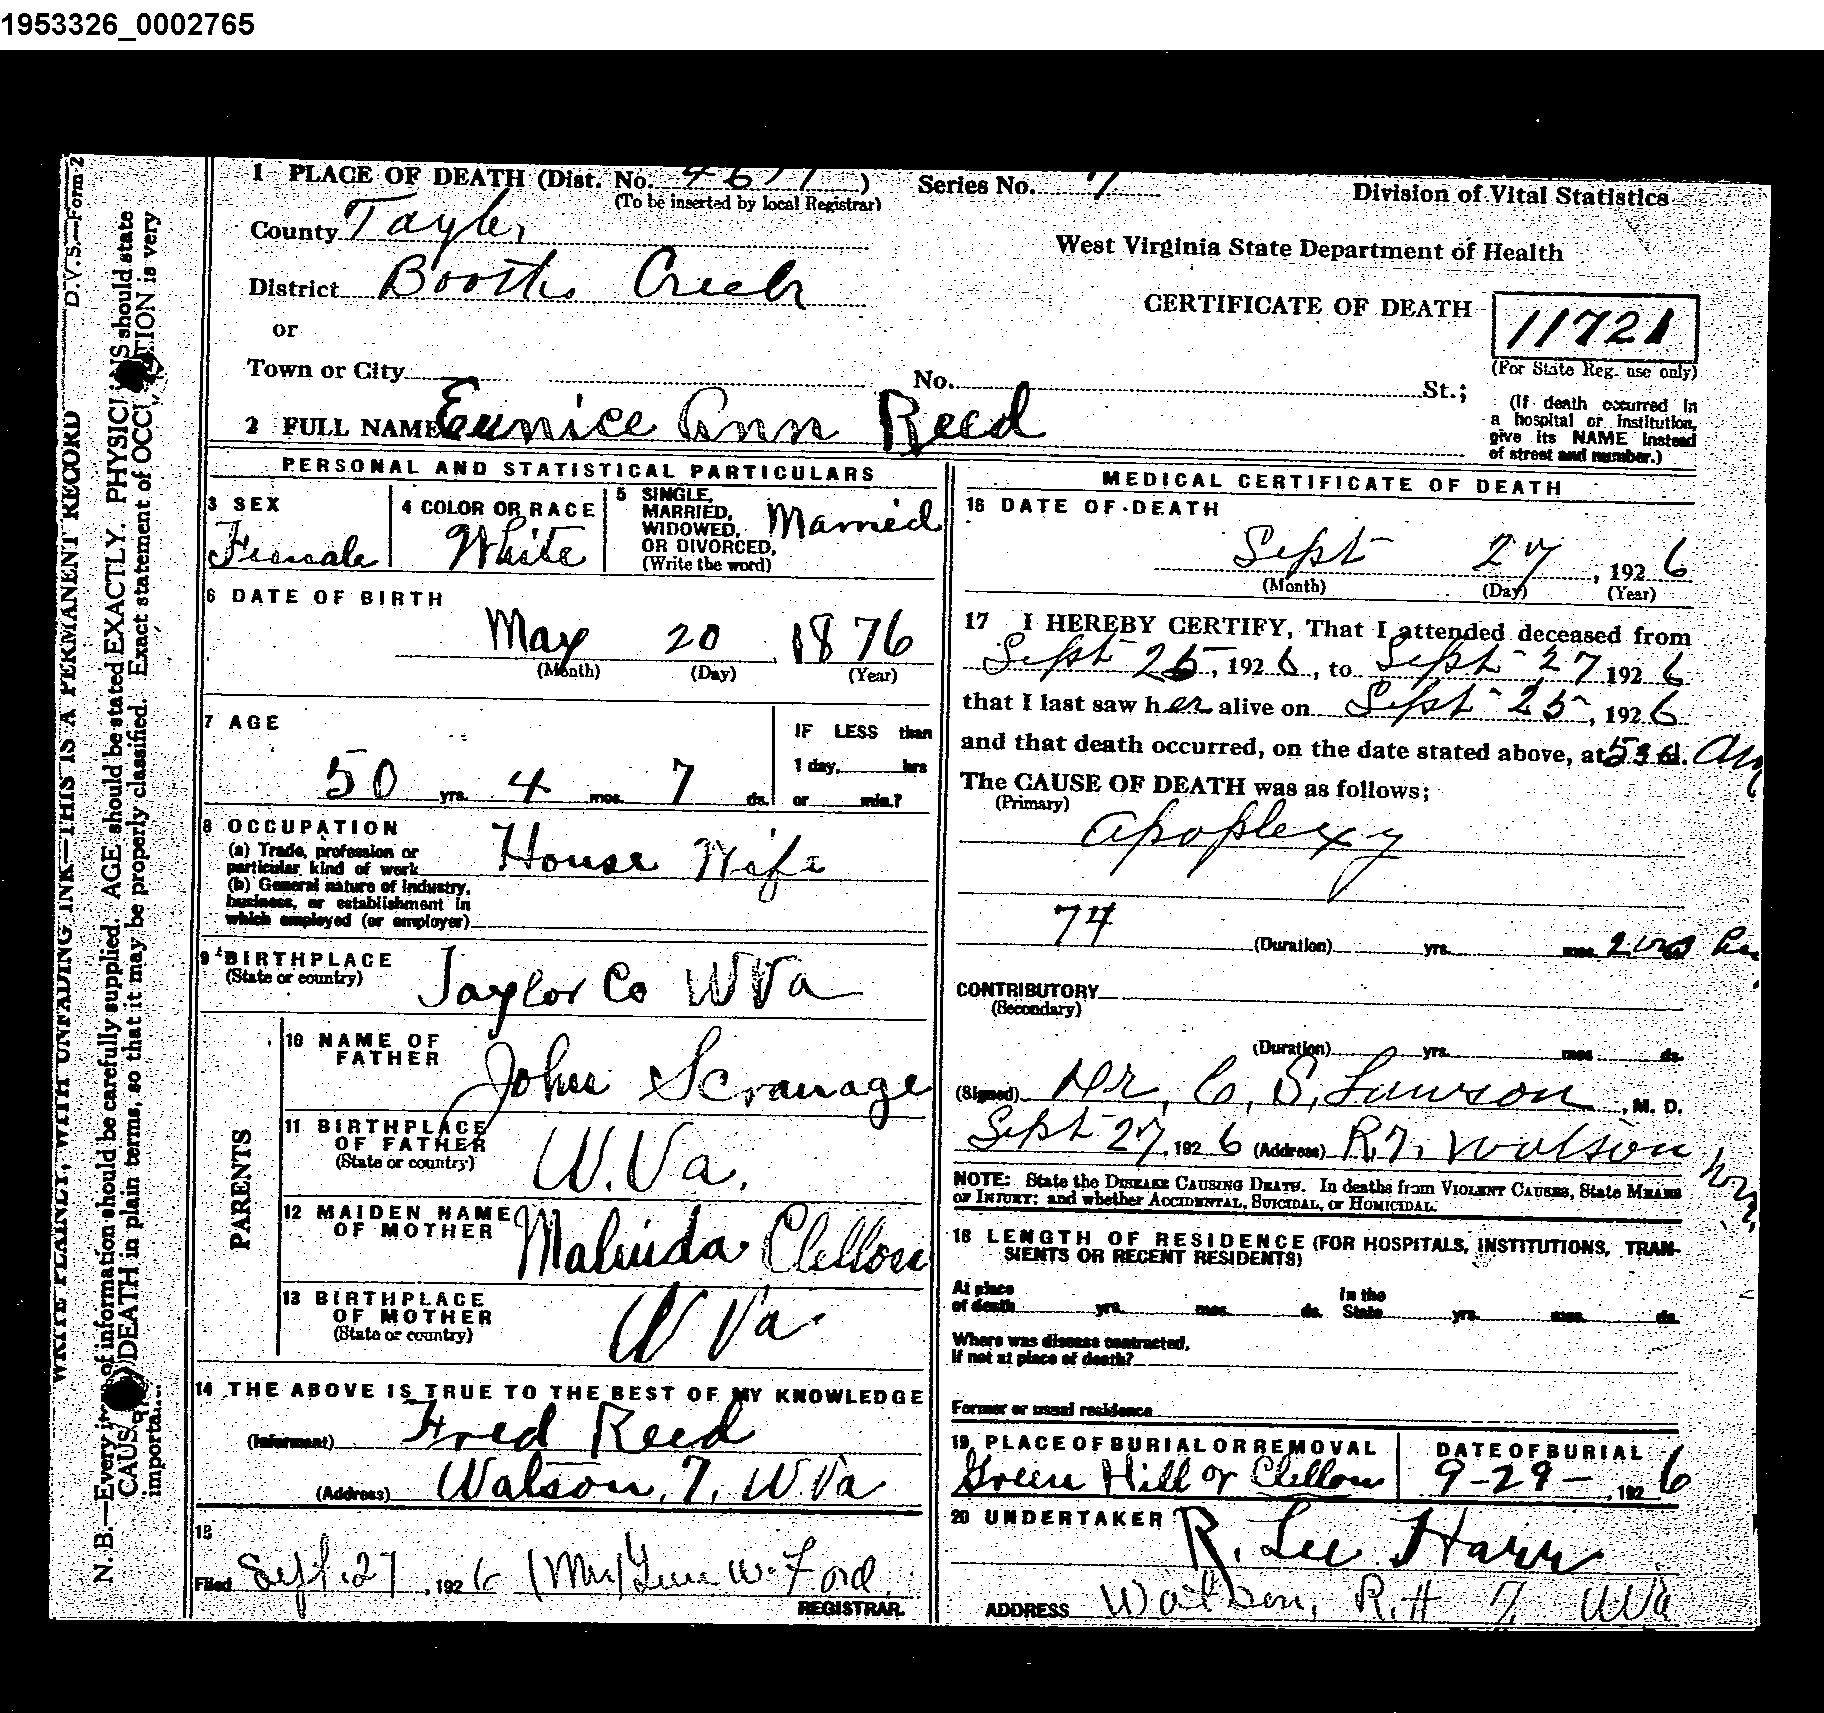 1953326_0002765
D.V.S.—Form 2
WRITE PLAINLY, WITH UNFADING INK—THIS IS A PERMANENT RECORD
N. B.—Every item of information should be carefully supplied. AGE should be stated EXACTLY. PHYSICIANS should state
CAUSE OF DEATH in plain terms, so that it may be properly classified. Exact statement of OCCUPATION is very
important.
1 PLACE OF DEATH (Dist. No. 4677) Series No. 7
(To be inserted by local Registrar)
Division of Vital Statistics
County Taylor
West Virginia State Department of Health
District Booths Creek
CERTIFICATE OF DEATH
11721
(For State Reg. use only)
or
Town or City No. St.;
(If death occurred in
a hospital or institution,
give its NAME instead
of street and number.)
2 FULL NAME Eunice Ann Reed
PERSONAL AND STATISTICAL PARTICULARS
3 SEX
Female
4 COLOR OR RACE
White
5 SINGLE,
MARRIED,
WIDOWED,
OR DIVORCED,
(Write the word)
Married
6 DATE OF BIRTH
May 20 1876
(Month) (Day) (Year)
7 AGE
50 yrs. 4 mos. 7 ds.
IF LESS than
1 day, hrs
or min.?
8 OCCUPATION
(a) Trade, profession or
particular kind of work
House Wife
(b) General nature of industry,
business, or establishment in
which employed (or employer)
9 BIRTHPLACE
(State or country)
Taylor Co W Va
PARENTS
10 NAME OF
FATHER
John Scranage
11 BIRTHPLACE
OF FATHER
(State or country)
W. Va.
12 MAIDEN NAME
OF MOTHER
Malinda Clellon
13 BIRTHPLACE
OF MOTHER
(State or country)
W Va.
14 THE ABOVE IS TRUE TO THE BEST OF MY KNOWLEDGE
(Informant) Fred Reed
(Address) Watson, 7, W. Va
15
Filed Sept. 27, 1926 (Mrs) W. Ford
REGISTRAR
MEDICAL CERTIFICATE OF DEATH
16 DATE OF DEATH
Sept 27, 1926
(Month) (Day) (Year)
17 I HEREBY CERTIFY, That I attended deceased from
Sept 25, 1926, to Sept - 27 1926
that I last saw her alive on Sept - 25, 1926
and that death occurred, on the date stated above, at 530 m. Am
The CAUSE OF DEATH was as follows;
(Primary)
Apoplexy
74
(Duration) yrs. mos.
CONTRIBUTORY
(Secondary)
(Duration) yrs. mos ds.
(Signed) Dr, C, S, Lawson, M. D.
Sept 27, 1926 (Address) R.7, Watson
NOTE: State the DISEASE CAUSING DEATH. In deaths from VIOLENT CAUSES, State MEANS
OF INJURY; and whether ACCIDENTAL, SUICIDAL, or HOMICIDAL.
18 LENGTH OF RESIDENCE (FOR HOSPITALS, INSTITUTIONS, TRAN-
SIENTS OR RECENT RESIDENTS)
At place
of death yrs. mos. ds.
In the
State yrs. mos. ds.
Where was disease contracted,
if not at place of death?
Former or usual residence
19 PLACE OF BURIAL OR REMOVAL
Green Hill or Clellon
DATE OF BURIAL
9-29-, 1926
20 UNDERTAKER
R. Lee Harr
ADDRESS Watson, R.# 7 W Va